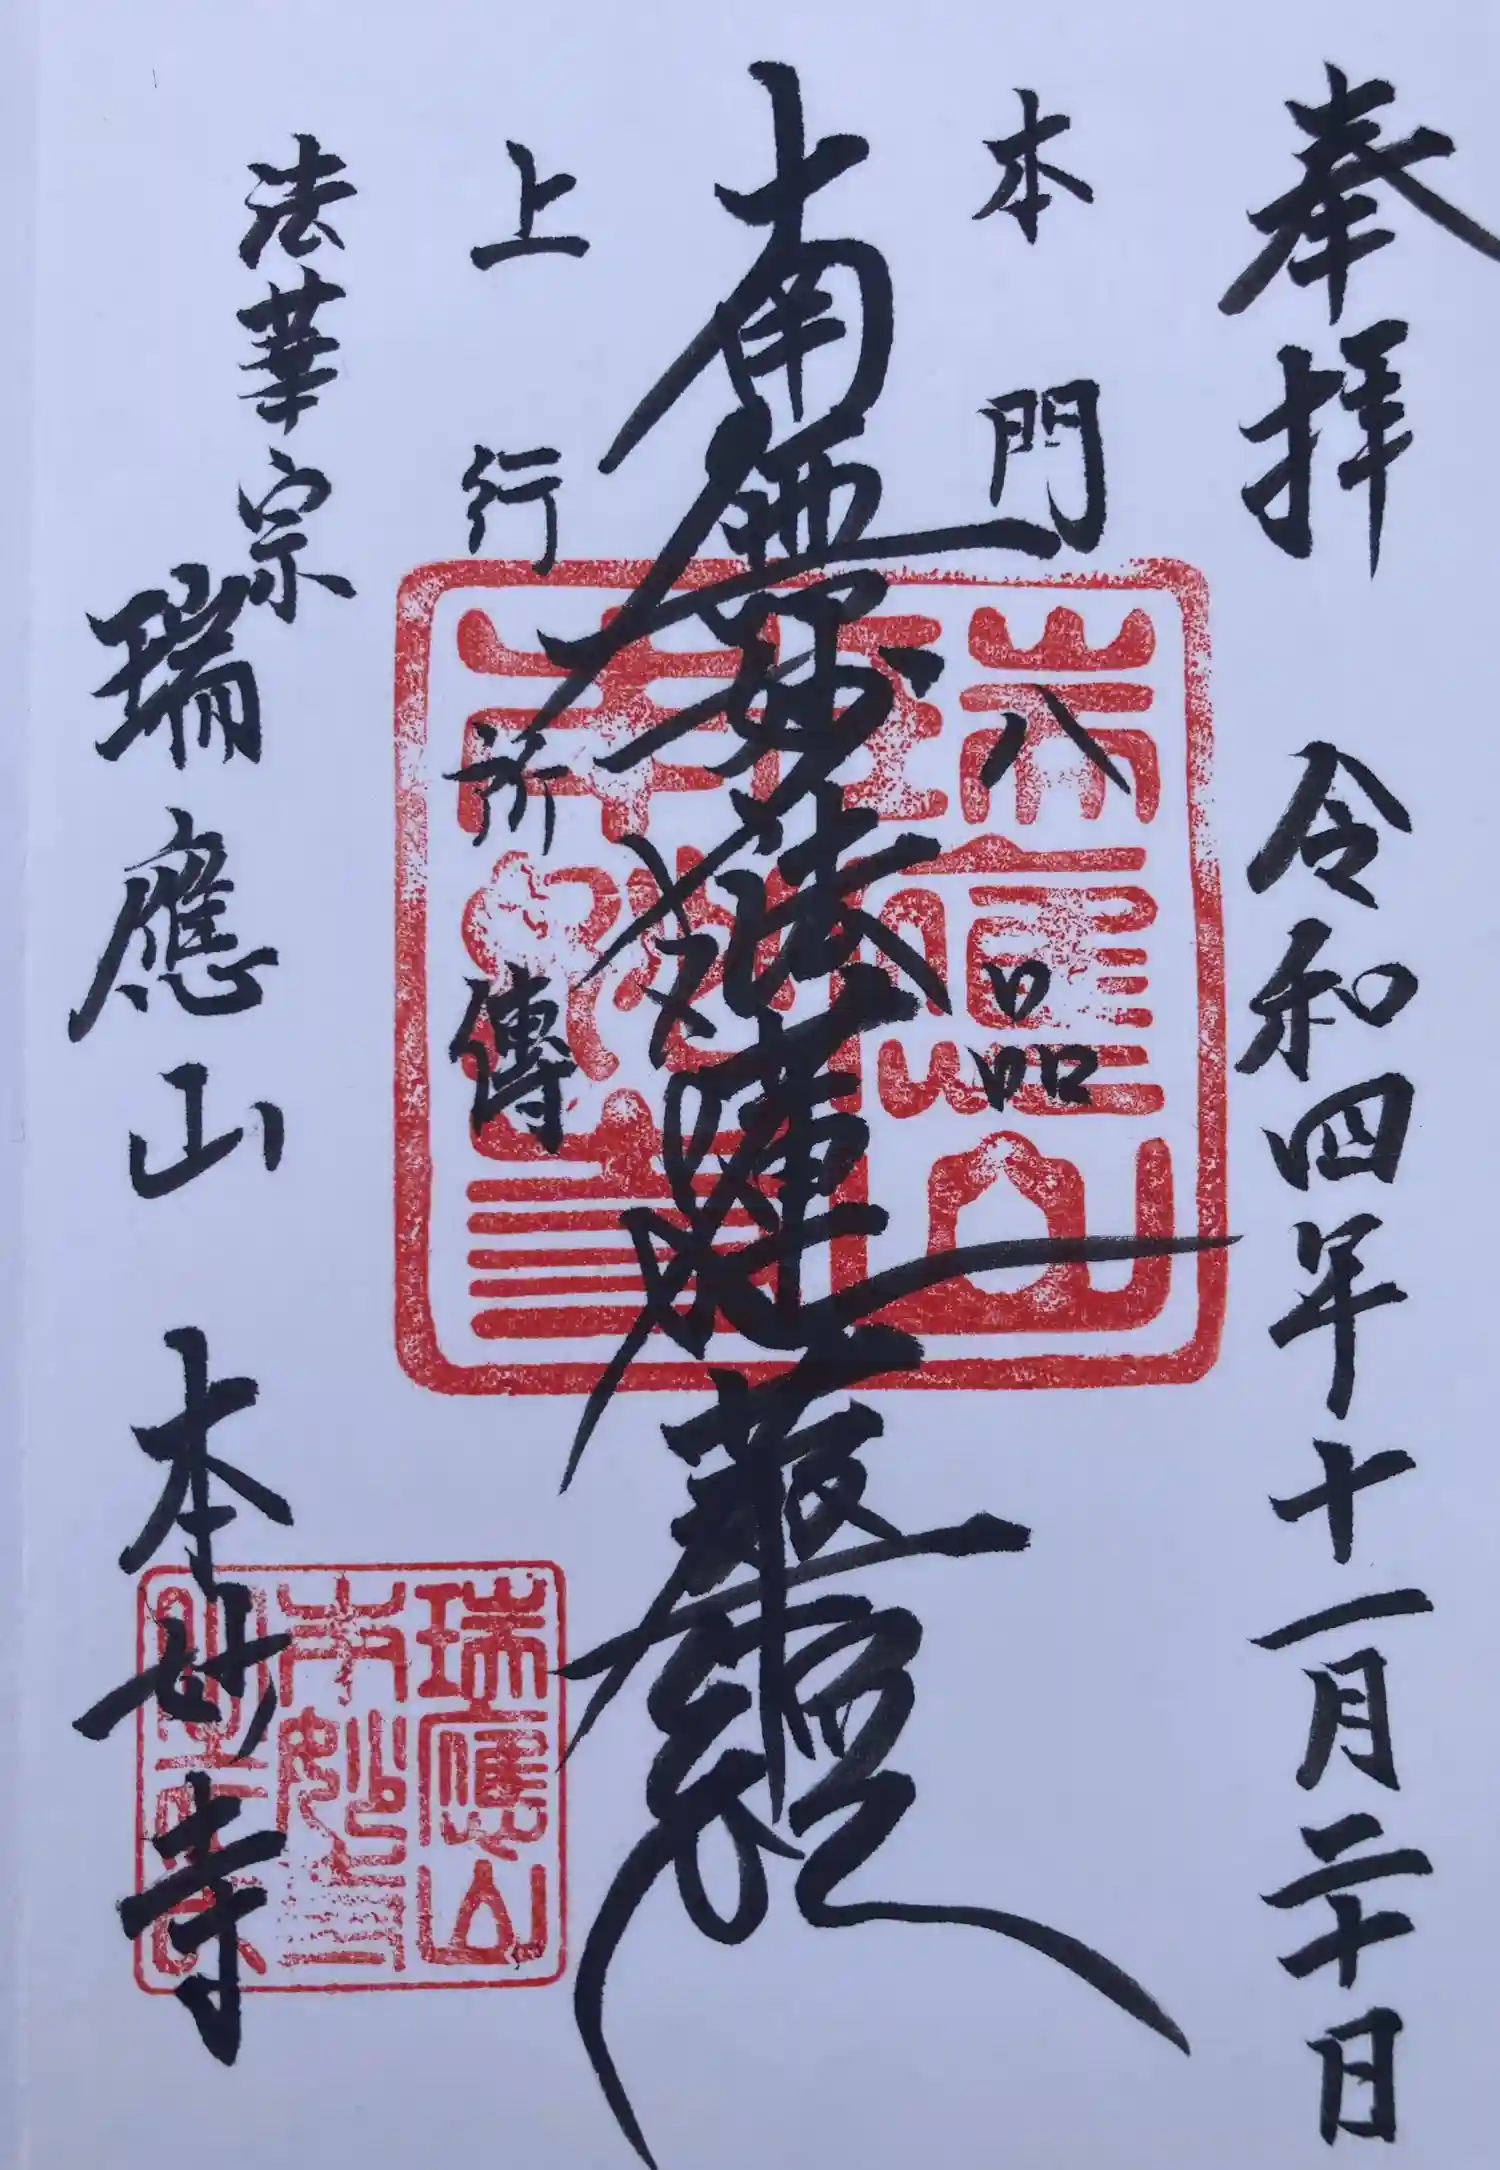 奉拝 令和四年十一月二十日
本門八品
南無妙法蓮華経
上行所傳
法華宗
瑞應山 本妙寺
瑞應山
本妙寺
瑞應山
本妙寺